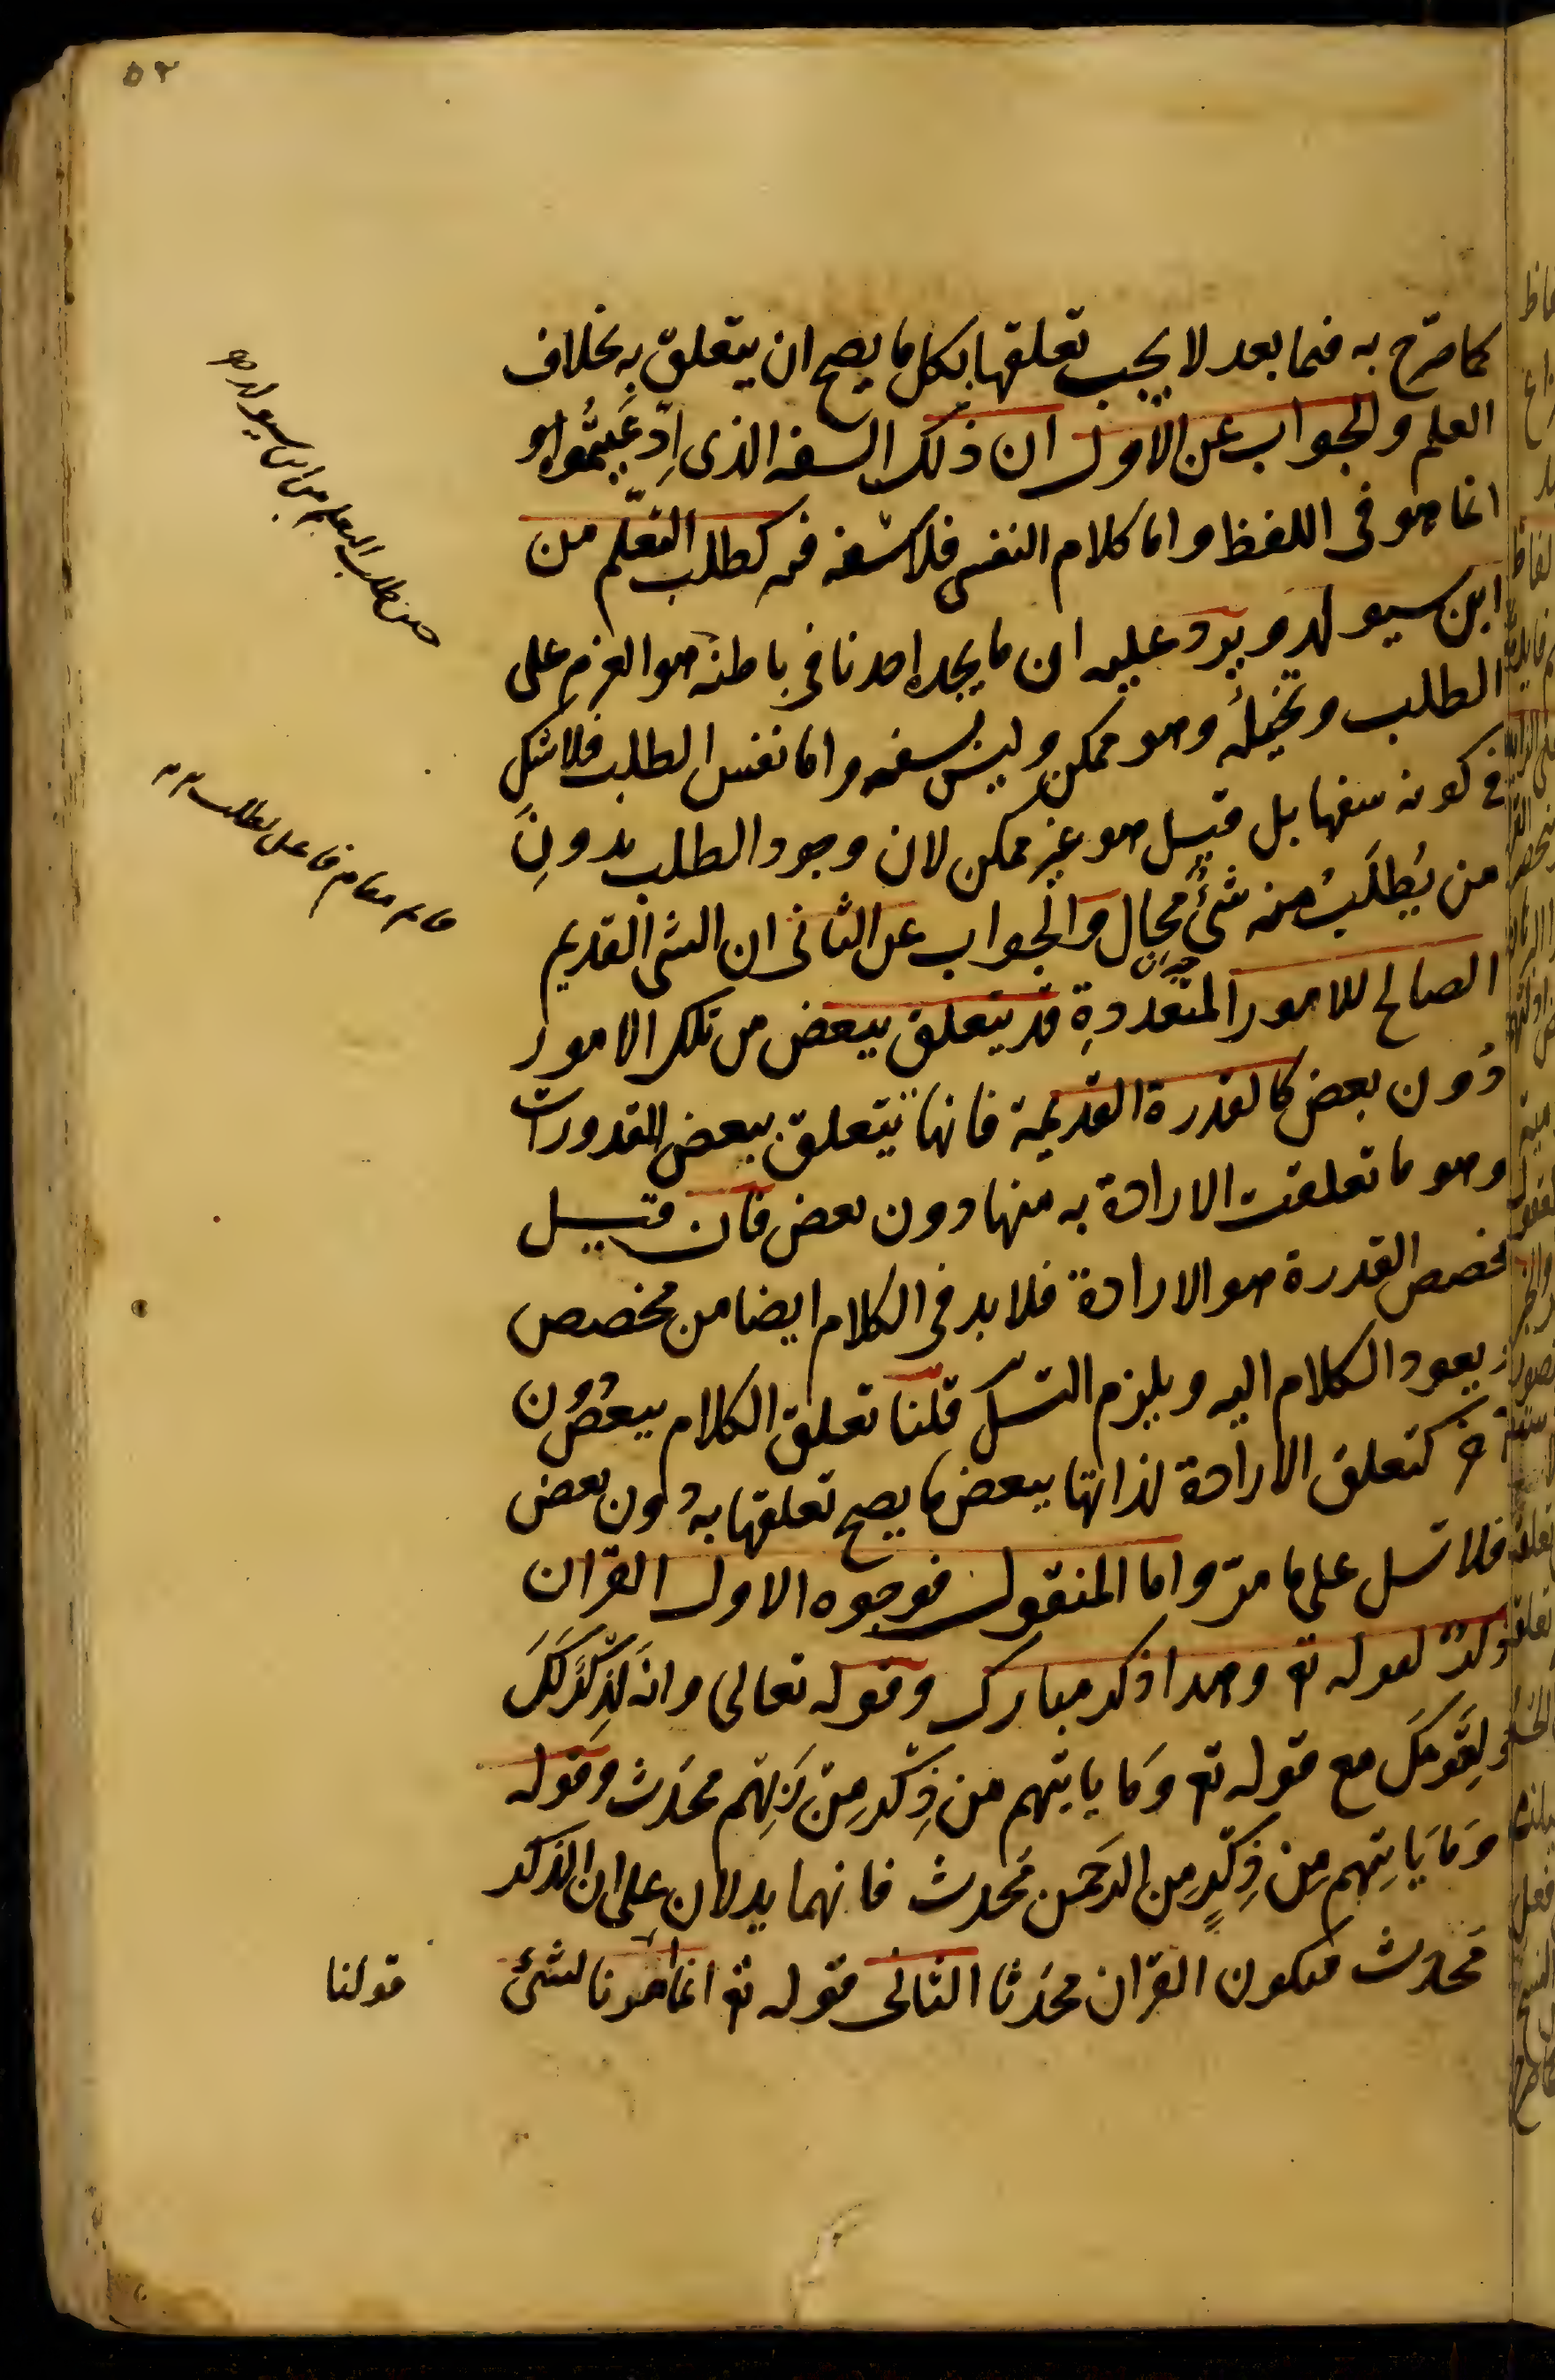 ٥٢
كما صرح به فيما بعد لا يجب تعلقها بكل ما يصح ان يتعلق به بخلاف
العلم والجواب عن الاول ان ذلك السفه الذى ادّعيتموه
انما هو فى اللفظ واما كلام النفس فلا سفه فيه كطلب التعلّم من
ابن سيولد ويرد عليه ان ما يجده احدنا فى باطنه هو العزم على
الطلب وتخيله وهو ممكن وليس بسفه واما نفس الطلب فلا شك
فى كونه سفها بل قيل هو غير ممكن لان وجود الطلب بدونِ
من يُطلَبُ منه شئ محال والجواب عن الثانى ان الشى القديم
الصالح للامور المتعددةِ قد يتعلق ببعض من تلك الامور
دُون بعض كالقدرة القديمة فانها تتعلق ببعض المقدورات
وهو ما تعلقت الارادة به منها دون بعض فان قيل
مخصص القدرة هو الارادة فلا بد فى الكلام ايضا من مخصص
يعود الكلام اليه ويلزم التسلّ قلنا تعلق الكلام ببعض دون
كتعلق الارادة لذاتها ببعض ما يصح تعلقها به دون بعض
فلا تسل على ما مرّ واما المنقول فوجوه الاول القران
ذكر لقوله تع وهذا ذكر مبارك وقوله تعالى وانه لَذِكرٌ لَكَ
ولِقَومِكَ مع قوله تع وَما ياتيهم من ذِكْرٍ مِن رَبِّهم محدَث وقوله
وَمَا يَاتِيهم مِن ذِكْرٍ مِن الرَحمن مُحدث فانهما يدلان على ان الذكر
مُحدث فيكون القران محدَثا الثانى قوله تع انما امرنا لشئ
قولنا